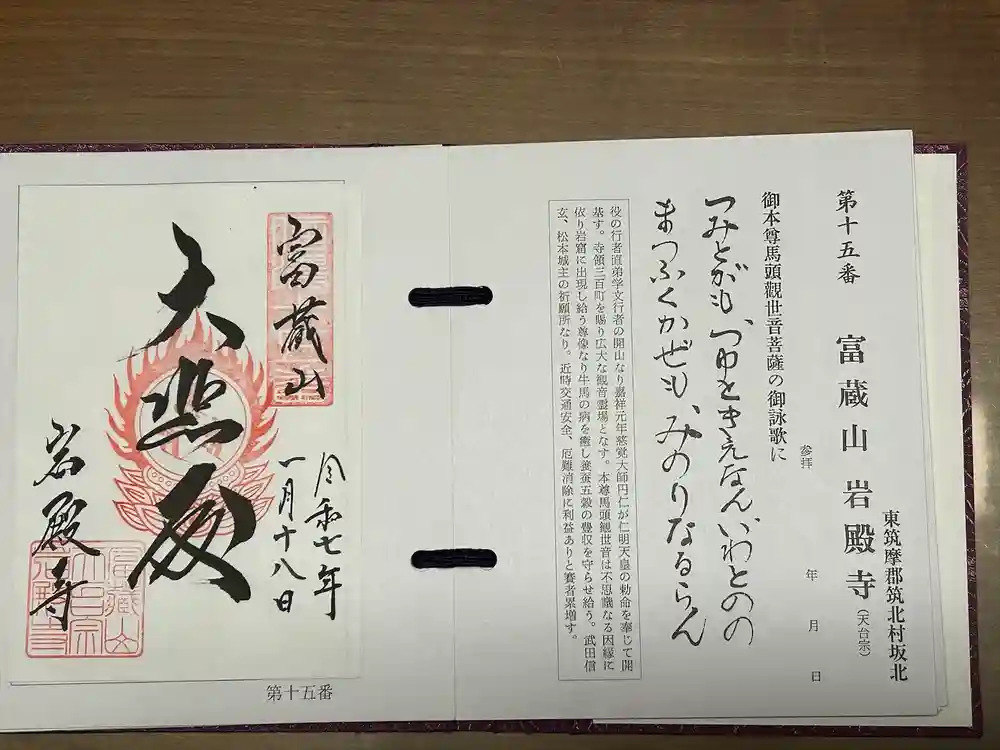 東筑摩郡筑北村坂北
第十五番 富蔵山岩殿寺(天台宗)
参拝 年 月 日
御本尊馬頭觀世音菩薩の御詠歌に
つみとがも、つゆときえなんいわとのの
まつふくかぜも、みのりなるらん
役の行者直弟学文行者の開山なり嘉祥元年慈覚大師円仁が仁明天皇の勅命を奉じて開
基す。寺領三百町を賜り広大な観音霊場となす。本尊馬頭観世音は不思議なる因縁に
依り岩窟に出現し給う尊像なり牛馬の病を癒し養蚕五穀の豊収を守らせ給う。武田信
玄、松本城主の祈願所なり。近時交通安全、厄難消除に利益ありと賽者累増す。
富蔵山
令和七年
一月十八日
大悲殿
岩殿寺
第十五番